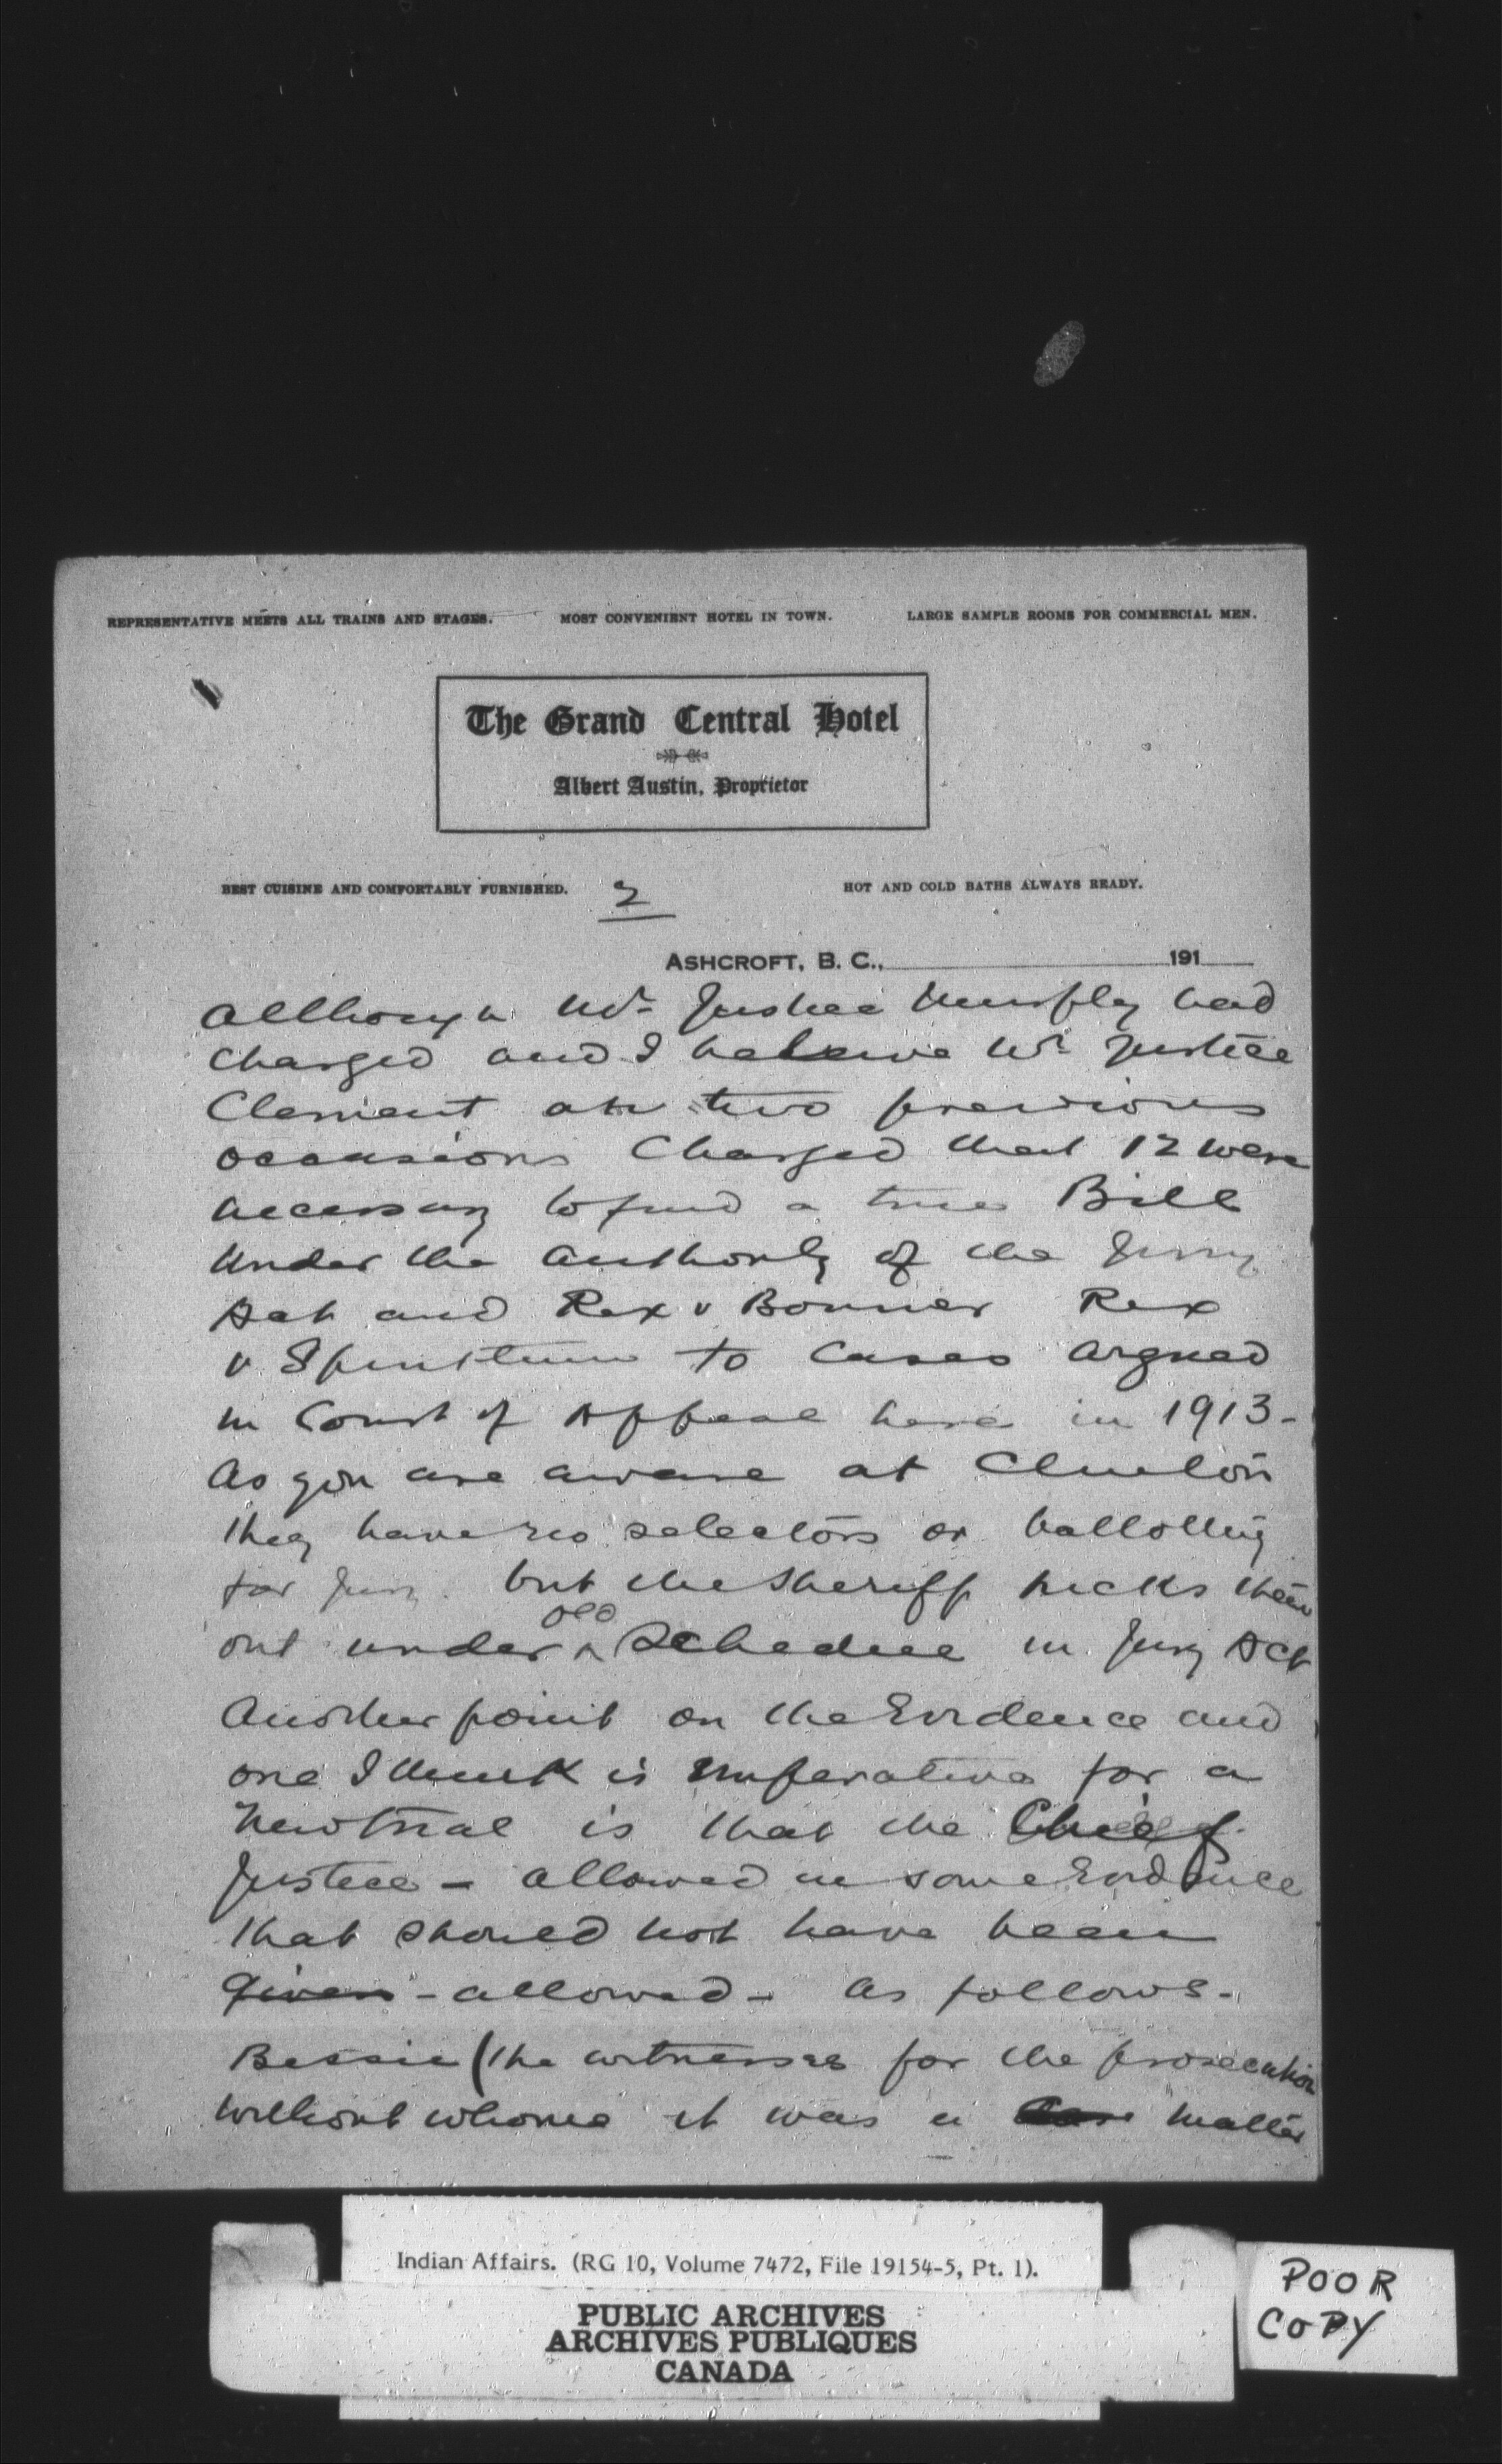 REPRESENTATIVE MEETS ALL TRAINS AND STAGES. MOST CONVENIENT HOTEL IN TOWN. LARGE SAMPLE ROOMS FOR COMMERCIAL MEN.
The Grand Central Hotel
Albert Austin, Proprietor
BEST CUISINE AND COMFORTABLY FURNISHED. 2 HOT AND COLD BATHS ALWAYS READY.
ASHCROFT, B. C., 191
Although Mr Justice Murphy had
charged and I believe Mr Justice
Clement on two previous
occasions charged that 12 were
necessary to find a true Bill
under the authority of the Jury
Act and Rex v Bonner Rex
v to cases argued
in Court of Appeal here in 1913-
as you are aware at Clinton
they have no selectors or ballotting
for jury. but the Sheriff picks them
out under old Schedule in Jury Act
Another point on the Evidence and
one I think is imperative for a
new trial is that the Chief
Justice - allowed in some Evidence
that should not have been
given - allowed - as follows -
Bessie (the witnesses for the prosecution
without whome it was a matter
Indian Affairs. (RG 10, Volume 7472, File 19154-5, Pt. 1).
PUBLIC ARCHIVES
ARCHIVES PUBLIQUES
CANADA
POOR
COPY